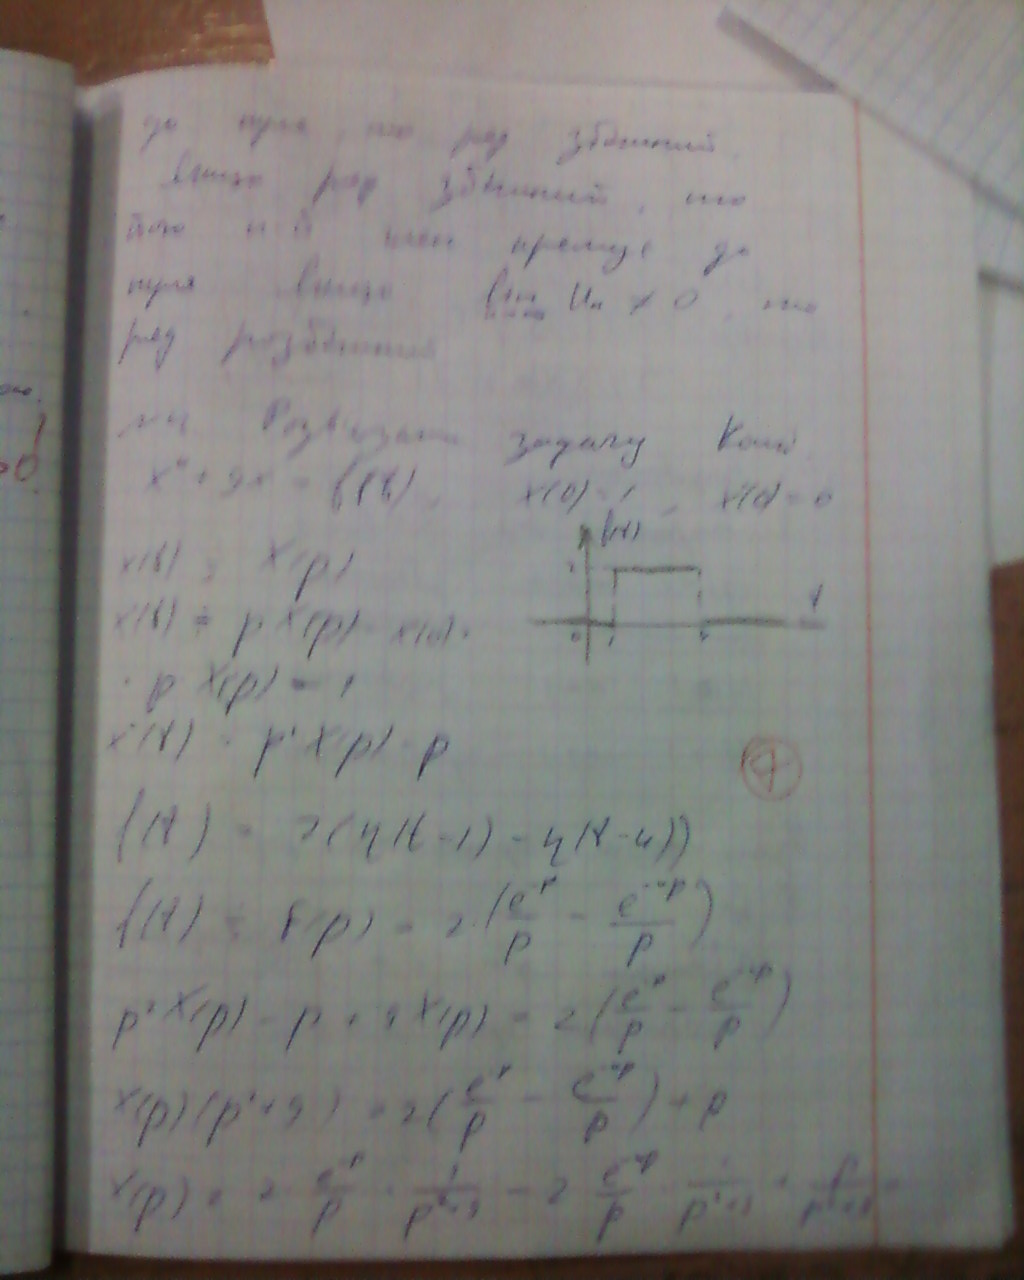 до нуля, то ряд збіжний.
Якщо ряд збіжний, то
його n-й член прямує до
нуля Якщо lim Uₙ ≠ 0, то
ряд розбіжний
Розв'язати задачу Коші
x'' + 9x = f(t), x(0) = 1, x'(0) = 0
f(t)
x(t) X(p)
t
x'(t) p X(p) - x(0) =
0 1 4
p X(p) - 1
x''(t) p² X(p) - p
f(t) = 2(η(t-1) - η(t-4))
f(t) F(p) = 2(e^-p/p - e^-4p/p)
p² X(p) - p + 9X(p) = 2(e^-p/p - e^-4p/p)
X(p)(p²+9) = 2(e^-p/p - e^-4p/p) + p
X(p) = 2 e^-p/p · 1/(p²+9) - 2 e^-4p/p · 1/(p²+9) + p/(p²+9) =